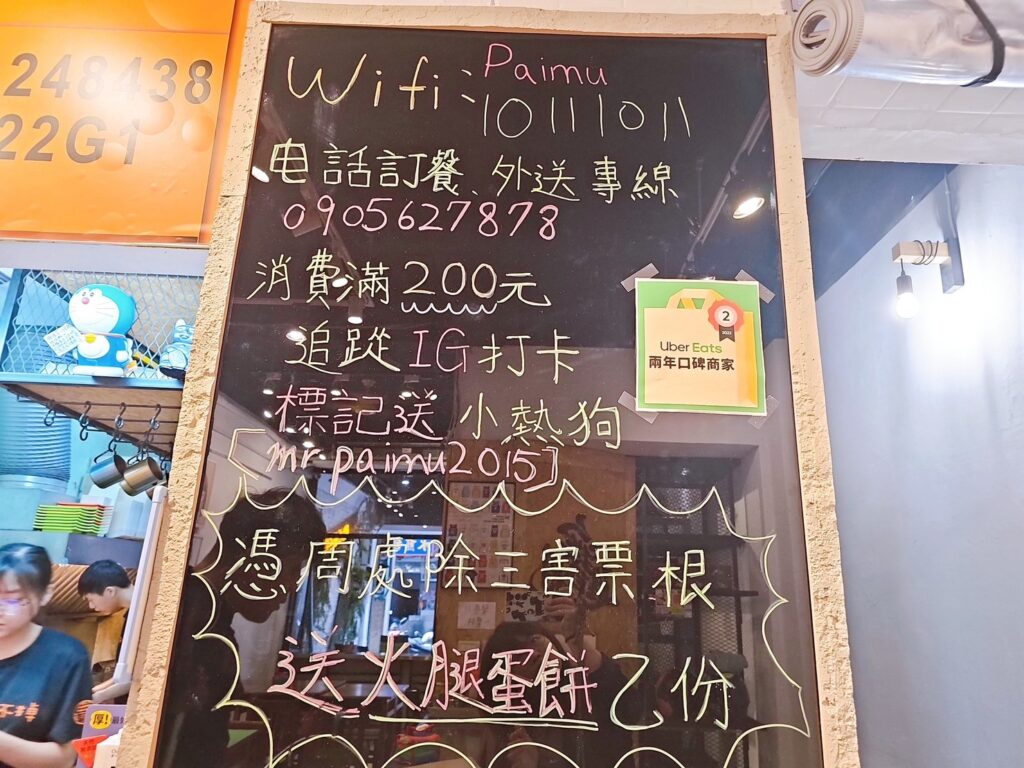 248438
22G1
Wifi: Paimu
10111011
电話訂餐、外送專線
0905627878
消費滿200元
追蹤IG打卡
標記送 小熱狗
[mr.paimu2015]
2
Uber Eats
兩年口碑商家
憑周處除三害票根
送火腿蛋餅乙份
厚!